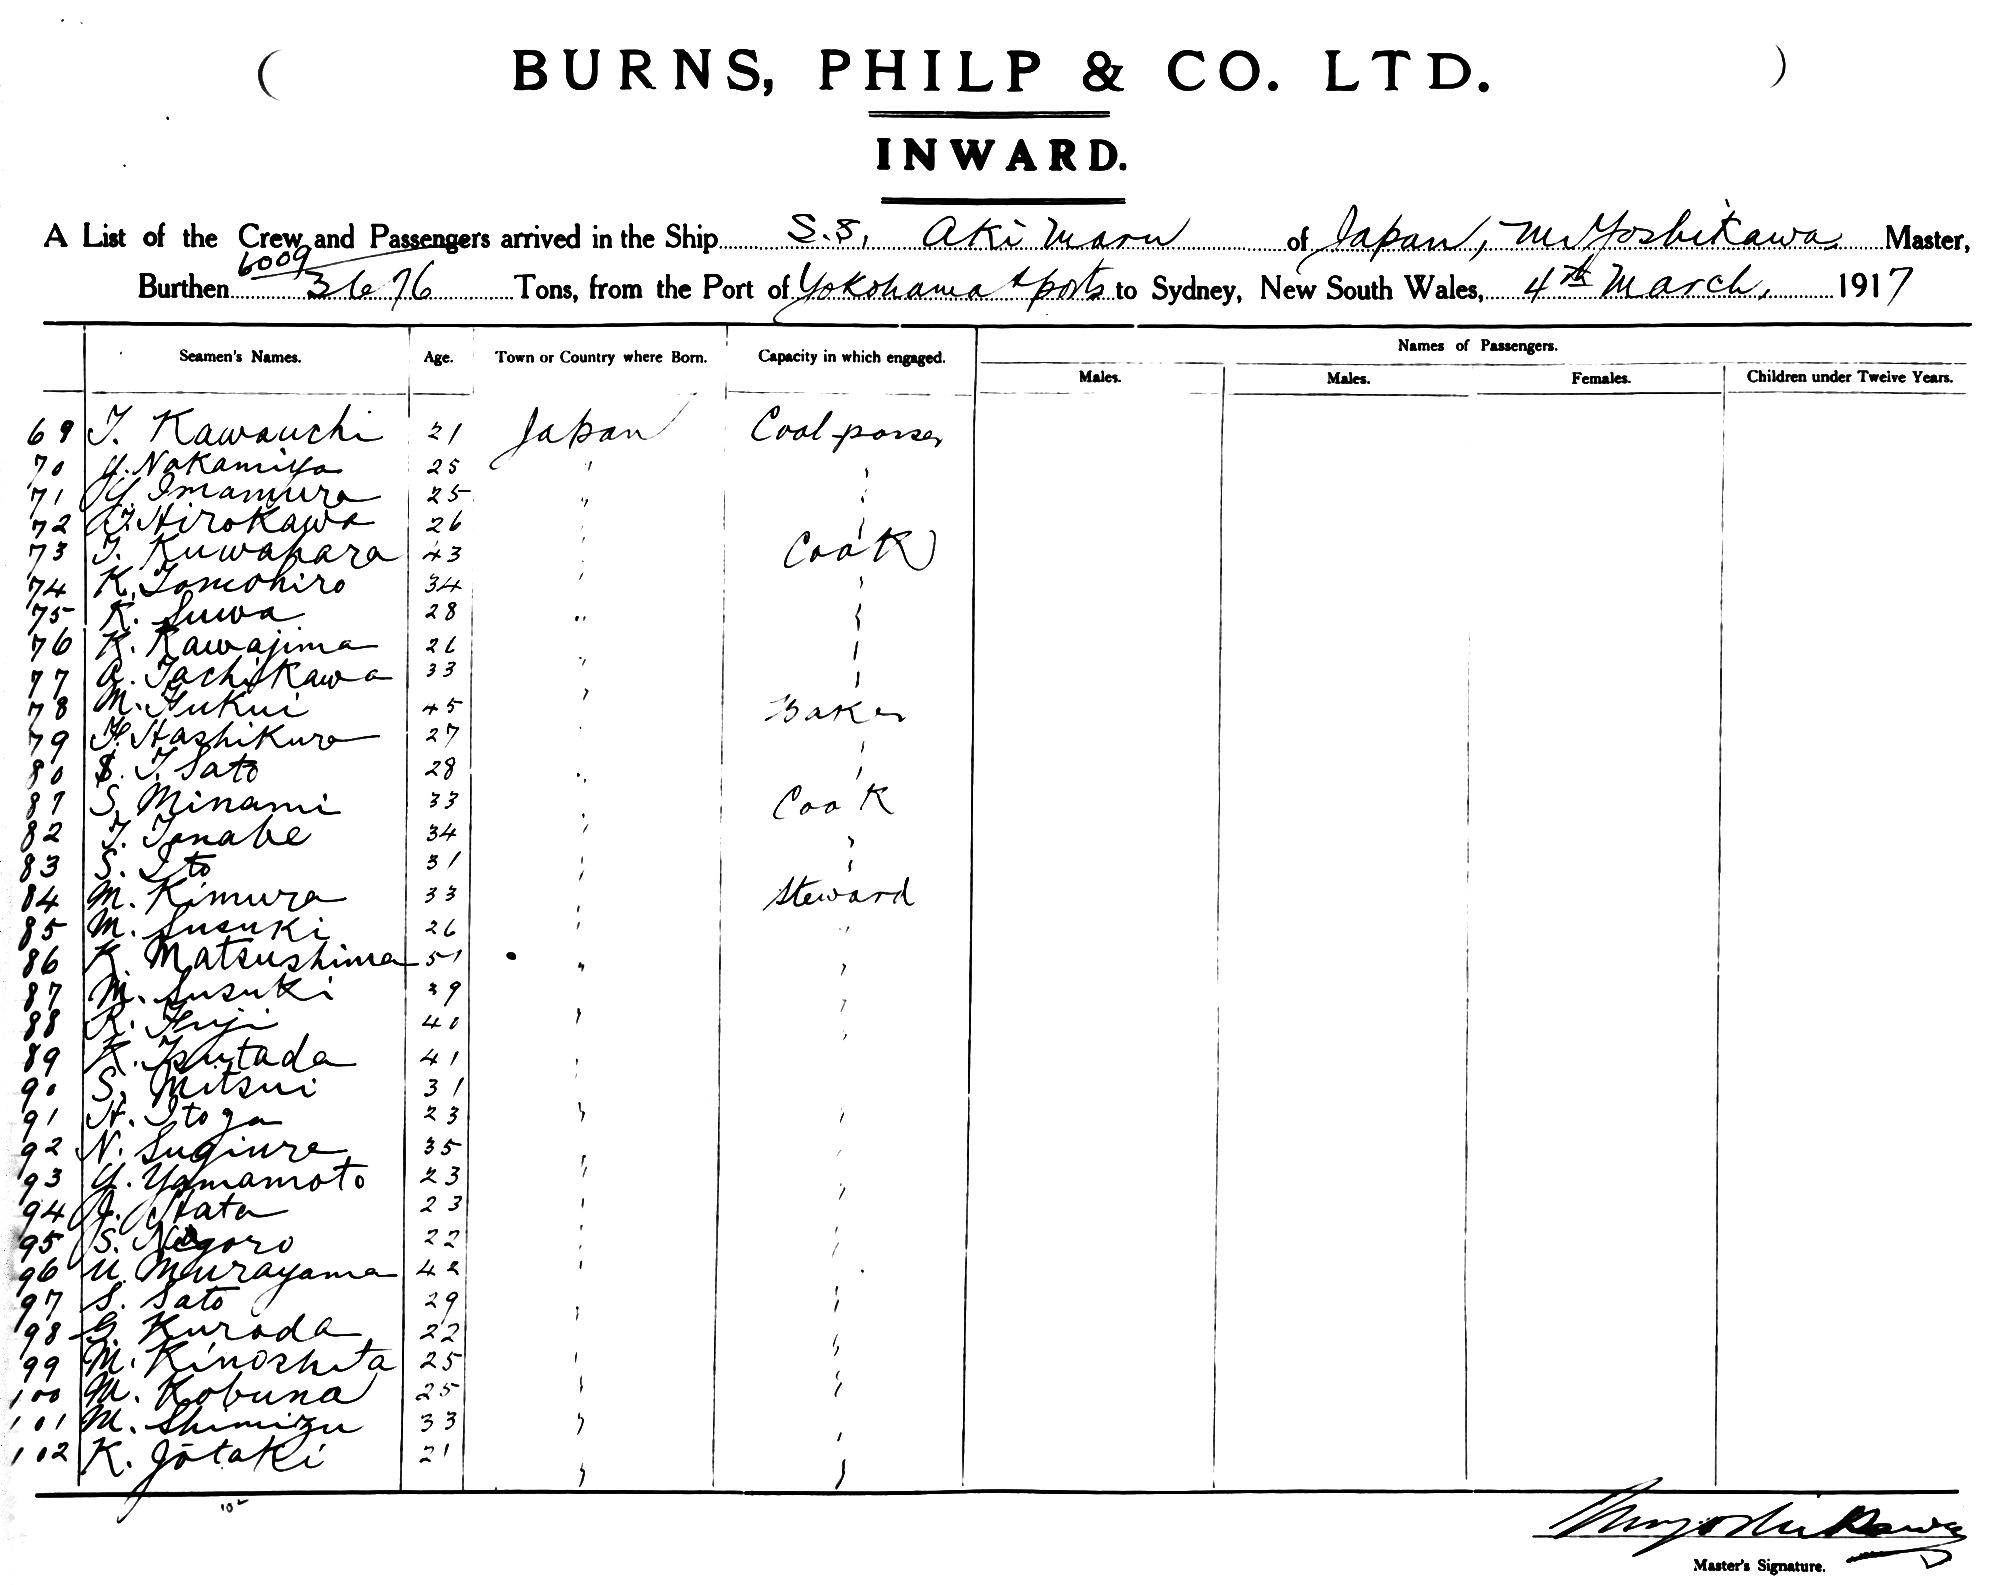 ( BURNS, PHILP & CO. LTD. )
INWARD.
A List of the Crew and Passengers arrived in the Ship S.S. Aki Maru of Japan, M. Yoshikawa Master,
6009
Burthen 3676 Tons, from the Port of Yokohama & ports to Sydney, New South Wales, 4th March, 1917
Names of Passengers.
Seamen's Names. Age. Town or Country where Born. Capacity in which engaged.
Males. Males. Females. Children under Twelve Years.
69 T. Kawauchi 21 Japan Coal-passer
70 Y. Nakamiya 25 "
71 Y. Imamura 25 "
72 Hirokawa 26 "
73 T. Kuwahara 43 " Cook
74 K. Tomohiro 34 "
75 K. Suwa 28 "
76 K. Kawajima 26 "
77 A. Tachikawa 33 "
78 M. Fukui 45 " Baker
79 F. Hashikura 27 "
80 S. T. Sato 28 " "
81 S. Minami 33 " Cook
82 T. Tanabe 34 " "
83 S. Ito 31 " "
84 M. Kimura 33 " Steward
85 M. Susuki 26 " "
86 K. Matsushima 51 " "
87 M. Susuki 39 " "
88 R. Fuji 40 " "
89 K. Tsutada 41 " "
90 S. Mitsui 31
91 H. Itoga 23 " "
92 N. Sugiura 35 " "
93 Y. Yamamoto 23 " "
94 J. Hata 23 " "
95 S. Negoro 22 " "
96 U. Murayama 42 " "
97 S. Sato 29 " "
98 G. Kuroda 22 " "
99 M. Kinoshita 25 " "
100 M. Kobuna 25 " "
101 M. Shimizu 33 " "
102 K. Jōtaki 21 " "
102
M Yoshikawa
Master's Signature.